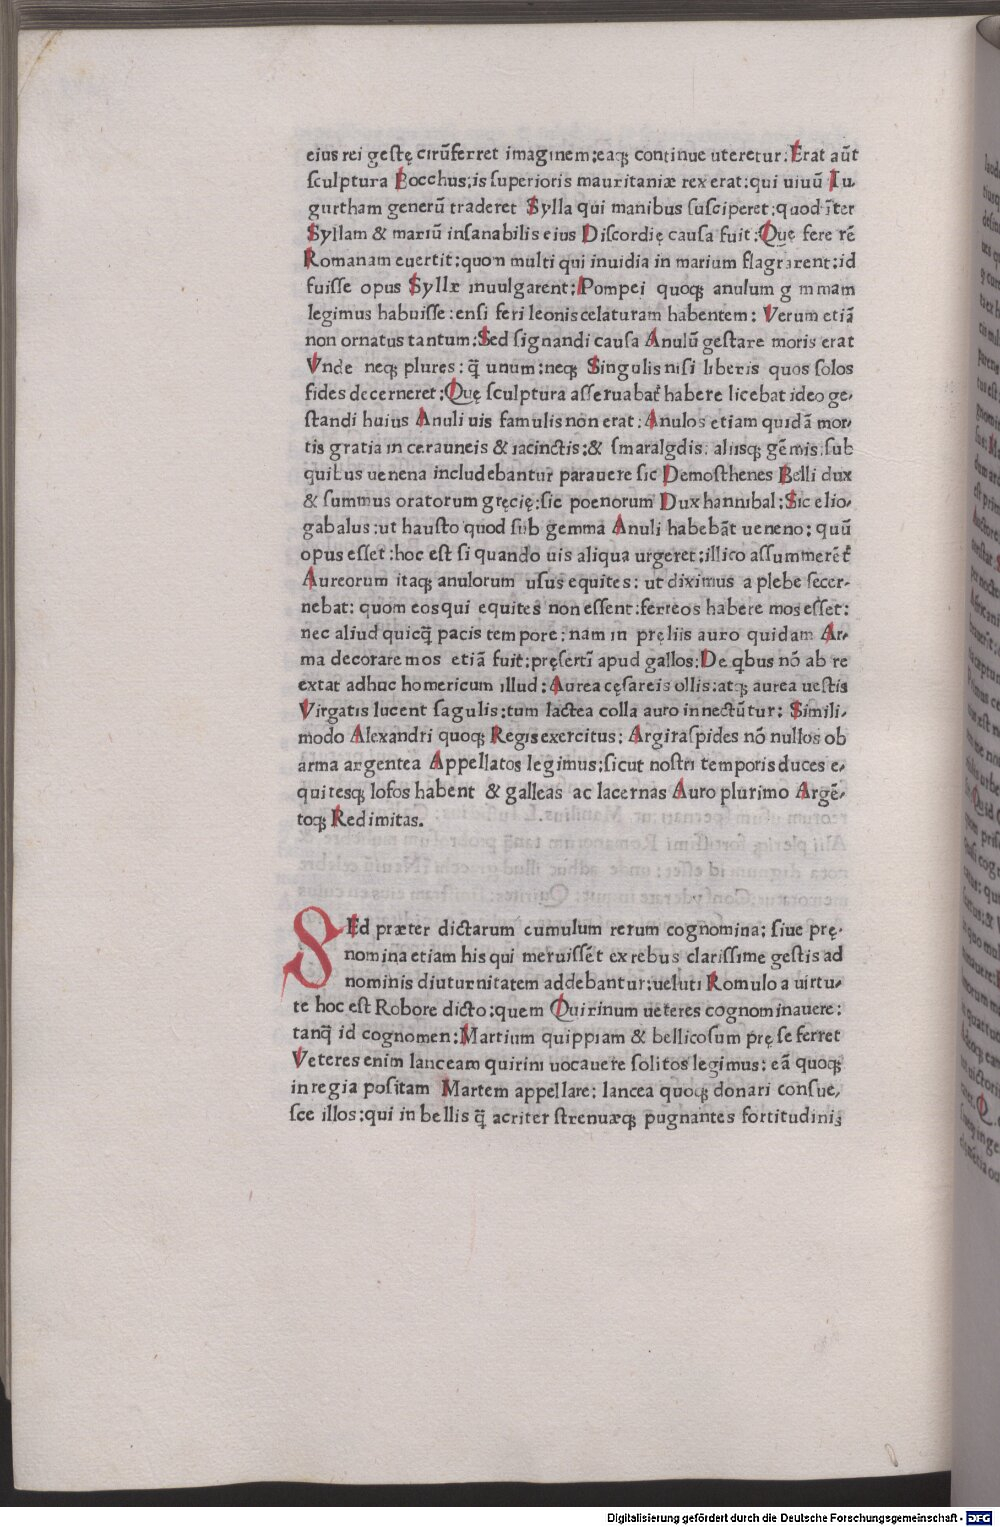 eius rei gestę cirũferret imaginem;eaqȝ continue uteretur. Erat aũt
sculptura Bocchus;is superioris mauritaniæ rex erat:qui uiuũ Iu-
gurtham generũ traderet Sylla qui manibus susciperet;quod ĩter
Syllam & mariũ insanabilis eius Discordię causa fuit;Quę fere rẽ
Romanam euertit;quon multi qui inuidia in marium flagrarent;id
fuisse opus Syllæ inuulgarent;Pompei quoqȝ anulum g mmam
legimus habuisse:ensi feri leonis celaturam habentem: Verum etiã
non ornatus tantum:Sed signandi causa Anulũ gestare moris erat
Vnde neqȝ plures: q̃ unum:neqȝ Singulis nisi liberis quos solos
fides decerneret;Quę sculptura asseruabat̃ habere licebat ideo ge-
standi huius Anuli uis famulis non erat: Anulos etiam quidã mor-
tis gratia in cerauneis & iacinctis:& smaralgdis. aliisqȝ gẽmis.sub
quibus uenena includebantur parauere sic Demosthenes Belli dux
& summus oratorum gręcię;sie poenorum Dux hannibal;Sic elio-
gabalus:ut hausto quod sub gemma Anuli habebãt ueneno; quũ
opus esset:hoc est si quando uis aliqua urgeret;illico assummerẽt̃
Aureorum itaqȝ anulorum usus equites: ut diximus a plebe secer-
nebat: quom eos qui equites non essent:ferreos habere mos esset:
nec aliud quicq̃ pacis tempore: nam in pręliis auro quidam Ar-
ma decorare mos etiã fuit;pręsertĩ apud gallos:De qbus nõ ab re
extat adhuc homericum illud: Aurea cęsareis ollis:atqȝ aurea uestis
Virgatis lucent sagulis:tum lactea colla auro innectũtur: Simili-
modo Alexandri quoqȝ Regis exercitus: Argiraspides nõ nullos ob
arma argentea Appellatos legimus;sicut nostri temporis duces e-
quitesqȝ lofos habent & galleas ac lacernas Auro plurimo Argẽ-
toqȝ Redimitas.
SEd præter dictarum cumulum rerum cognomina; siue prę-
nomina etiam his qui meruissẽt ex rebus clarissime gestis ad
nominis diuturnitatem addebantur;ueluti Romulo a uirtu-
te hoc est Robore dicto;quem Quirinum ueteres cognominauere:
tanq̃ id cognomen:Martium quippiam & bellicosum prę se ferret
Veteres enim lanceam quirini uocauere solitos legimus: eã quoqȝ
in regia positam Martem appellare: lancea quoqȝ donari consue-
sce illos:qui in bellis q̃ acriter strenuæqȝ pugnantes fortitudinis
Digitalisierung gefördert durch die Deutsche Forschungsgemeinschaft - DFG